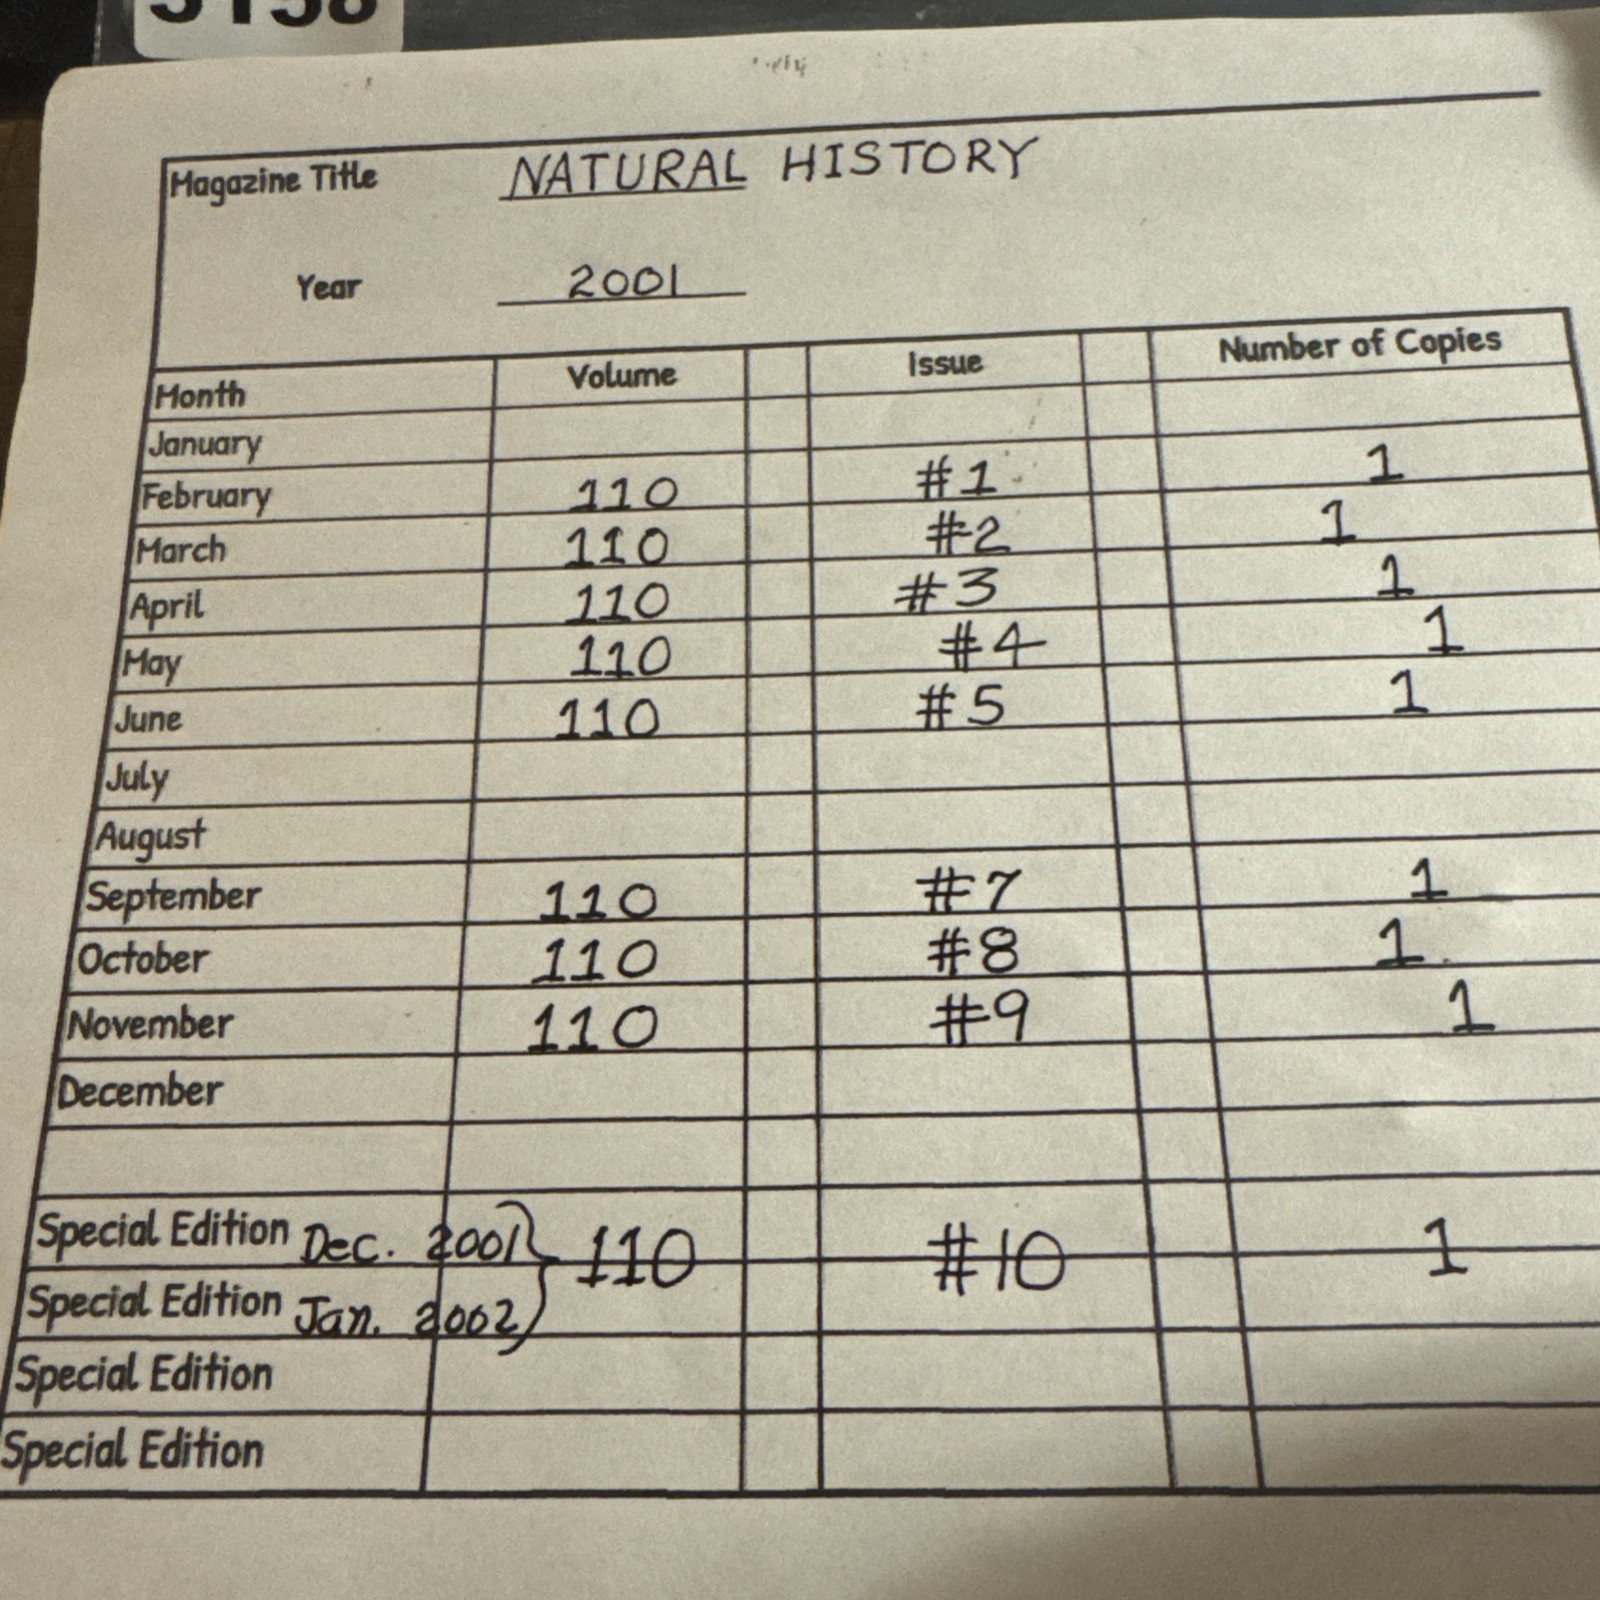 Magazine Title NATURAL HISTORY
Year 2001
Month Volume Issue Number of Copies
January
February 110 #1 1
March 110 #2 1
April 110 #3 1
May 110 #4 1
June 110 #5 1
July
August
September 110 #7 1
October 110 #8 1
November 110 #9 1
December
Special Edition Dec. 2001 110 #10 1
Special Edition Jan. 2002
Special Edition
Special Edition